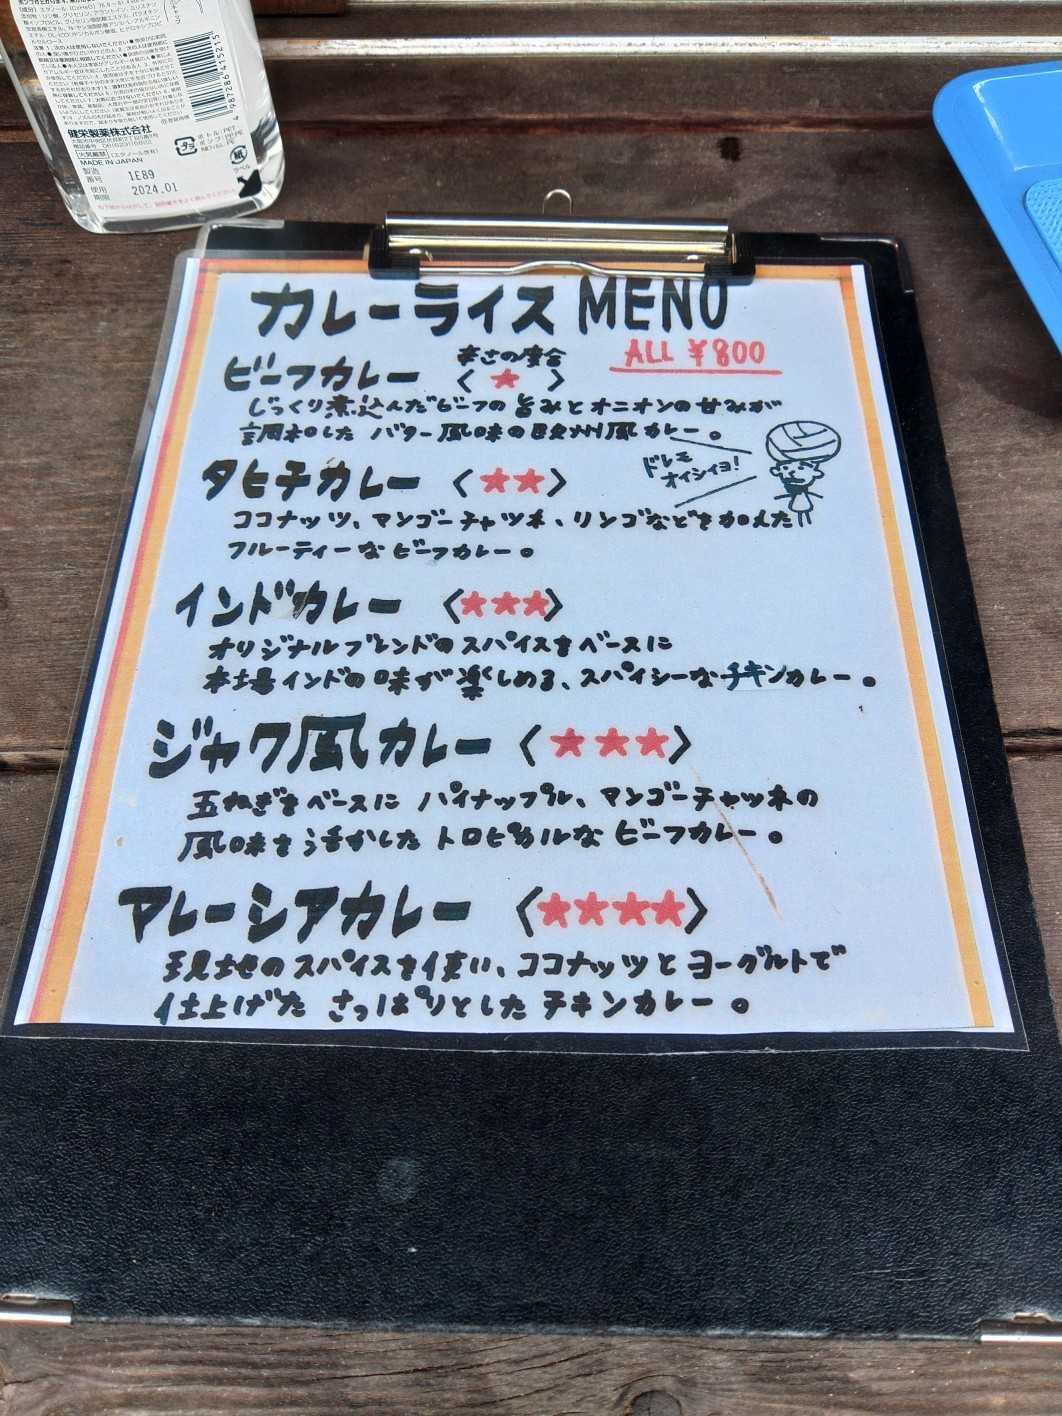 健栄製薬株式会社
MADE IN JAPAN
製造番号 1E89
使用期限 2024.01
4 987286 415215
カレーライス MENO
辛さの度合
ALL ¥800
ビーフカレー 〈 ★ 〉
じっくり煮込んだビーフの旨みとオニオンの甘みが
調和した バター風味の欧州風カレー。
ドレモ
オイシイヨ!
タヒチカレー 〈★★〉
ココナッツ、マンゴーチャツネ、リンゴなどを加えた
フルーティーなビーフカレー。
インドカレー 〈★★★〉
オリジナルブレンドのスパイスをベースに
本場インドの味が楽しめる、スパイシーなチキンカレー。
ジャワ風カレー 〈★★★〉
玉ねぎをベースに パイナップル、マンゴーチャツネの
風味を活かした トロピカルな ビーフカレー。
マレーシアカレー 〈★★★★〉
現地のスパイスを使い、ココナッツとヨーグルトで
仕上げた さっぱりとしたチキンカレー。